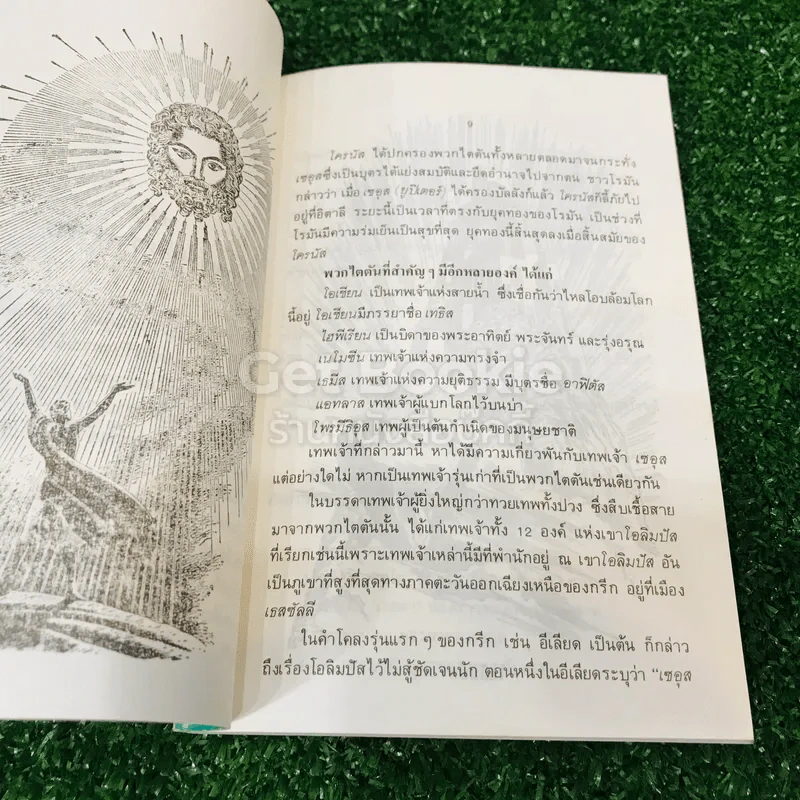 9
โครนัส ได้ปกครองพวกไตตันทั้งหลายตลอดมาจนกระทั่ง
เซอุสซึ่งเป็นบุตรได้แย่งสมบัติและยึดอำนาจไปจากตน ชาวโรมัน
กล่าวว่า เมื่อ เซอุส (ยูปิเตอร์) ได้ครองบัลลังก์แล้ว โครนัสก็ลี้ภัยไป
อยู่ที่อิตาลี ระยะนี้เป็นเวลาที่ตรงกับยุคทองของโรมัน เป็นช่วงที่
โรมันมีความร่มเย็นเป็นสุขที่สุด ยุคทองนี้สิ้นสุดลงเมื่อสิ้นสมัยของ
โครนัส
พวกไตตันที่สำคัญ ๆ มีอีกหลายองค์ ได้แก่
โอเชียน เป็นเทพเจ้าแห่งสายน้ำ ซึ่งเชื่อกันว่าไหลโอบล้อมโลก
นี้อยู่ โอเชียนมีภรรยาชื่อ เทธิส
ไฮพีเรียน เป็นบิดาของพระอาทิตย์ พระจันทร์ และรุ่งอรุณ
เนโมซีน เทพเจ้าแห่งความทรงจำ
เธมีส เทพเจ้าแห่งความยุติธรรม มีบุตรชื่อ อาฟิตัส
แอทลาส เทพเจ้าผู้แบกโลกไว้บนบ่า
โพรมีธิอุส เทพผู้เป็นต้นกำเนิดของมนุษยชาติ
เทพเจ้าที่กล่าวมานี้ หาได้มีความเกี่ยวพันกับเทพเจ้า เซอุส
แต่อย่างใดไม่ หากเป็นเทพเจ้ารุ่นเก่าที่เป็นพวกไตตันเช่นเดียวกัน
ในบรรดาเทพเจ้าผู้ยิ่งใหญ่กว่าทวยเทพทั้งปวง ซึ่งสืบเชื้อสาย
มาจากพวกไตตันนั้น ได้แก่เทพเจ้าทั้ง 12 องค์ แห่งเขาโอลิมปัส
ที่เรียกเช่นนี้เพราะเทพเจ้าเหล่านี้มีที่พำนักอยู่ ณ เขาโอลิมปัส อัน
เป็นภูเขาที่สูงที่สุดทางภาคตะวันออกเฉียงเหนือของกรีก อยู่ที่เมือง
เธสซัลลี
ในคำโคลงรุ่นแรก ๆ ของกรีก เช่น อีเลียด เป็นต้น ก็กล่าว
ถึงเรื่องโอลิมปัสไว้ไม่สู้ชัดเจนนัก ตอนหนึ่งในอีเลียดระบุว่า “เซอุส